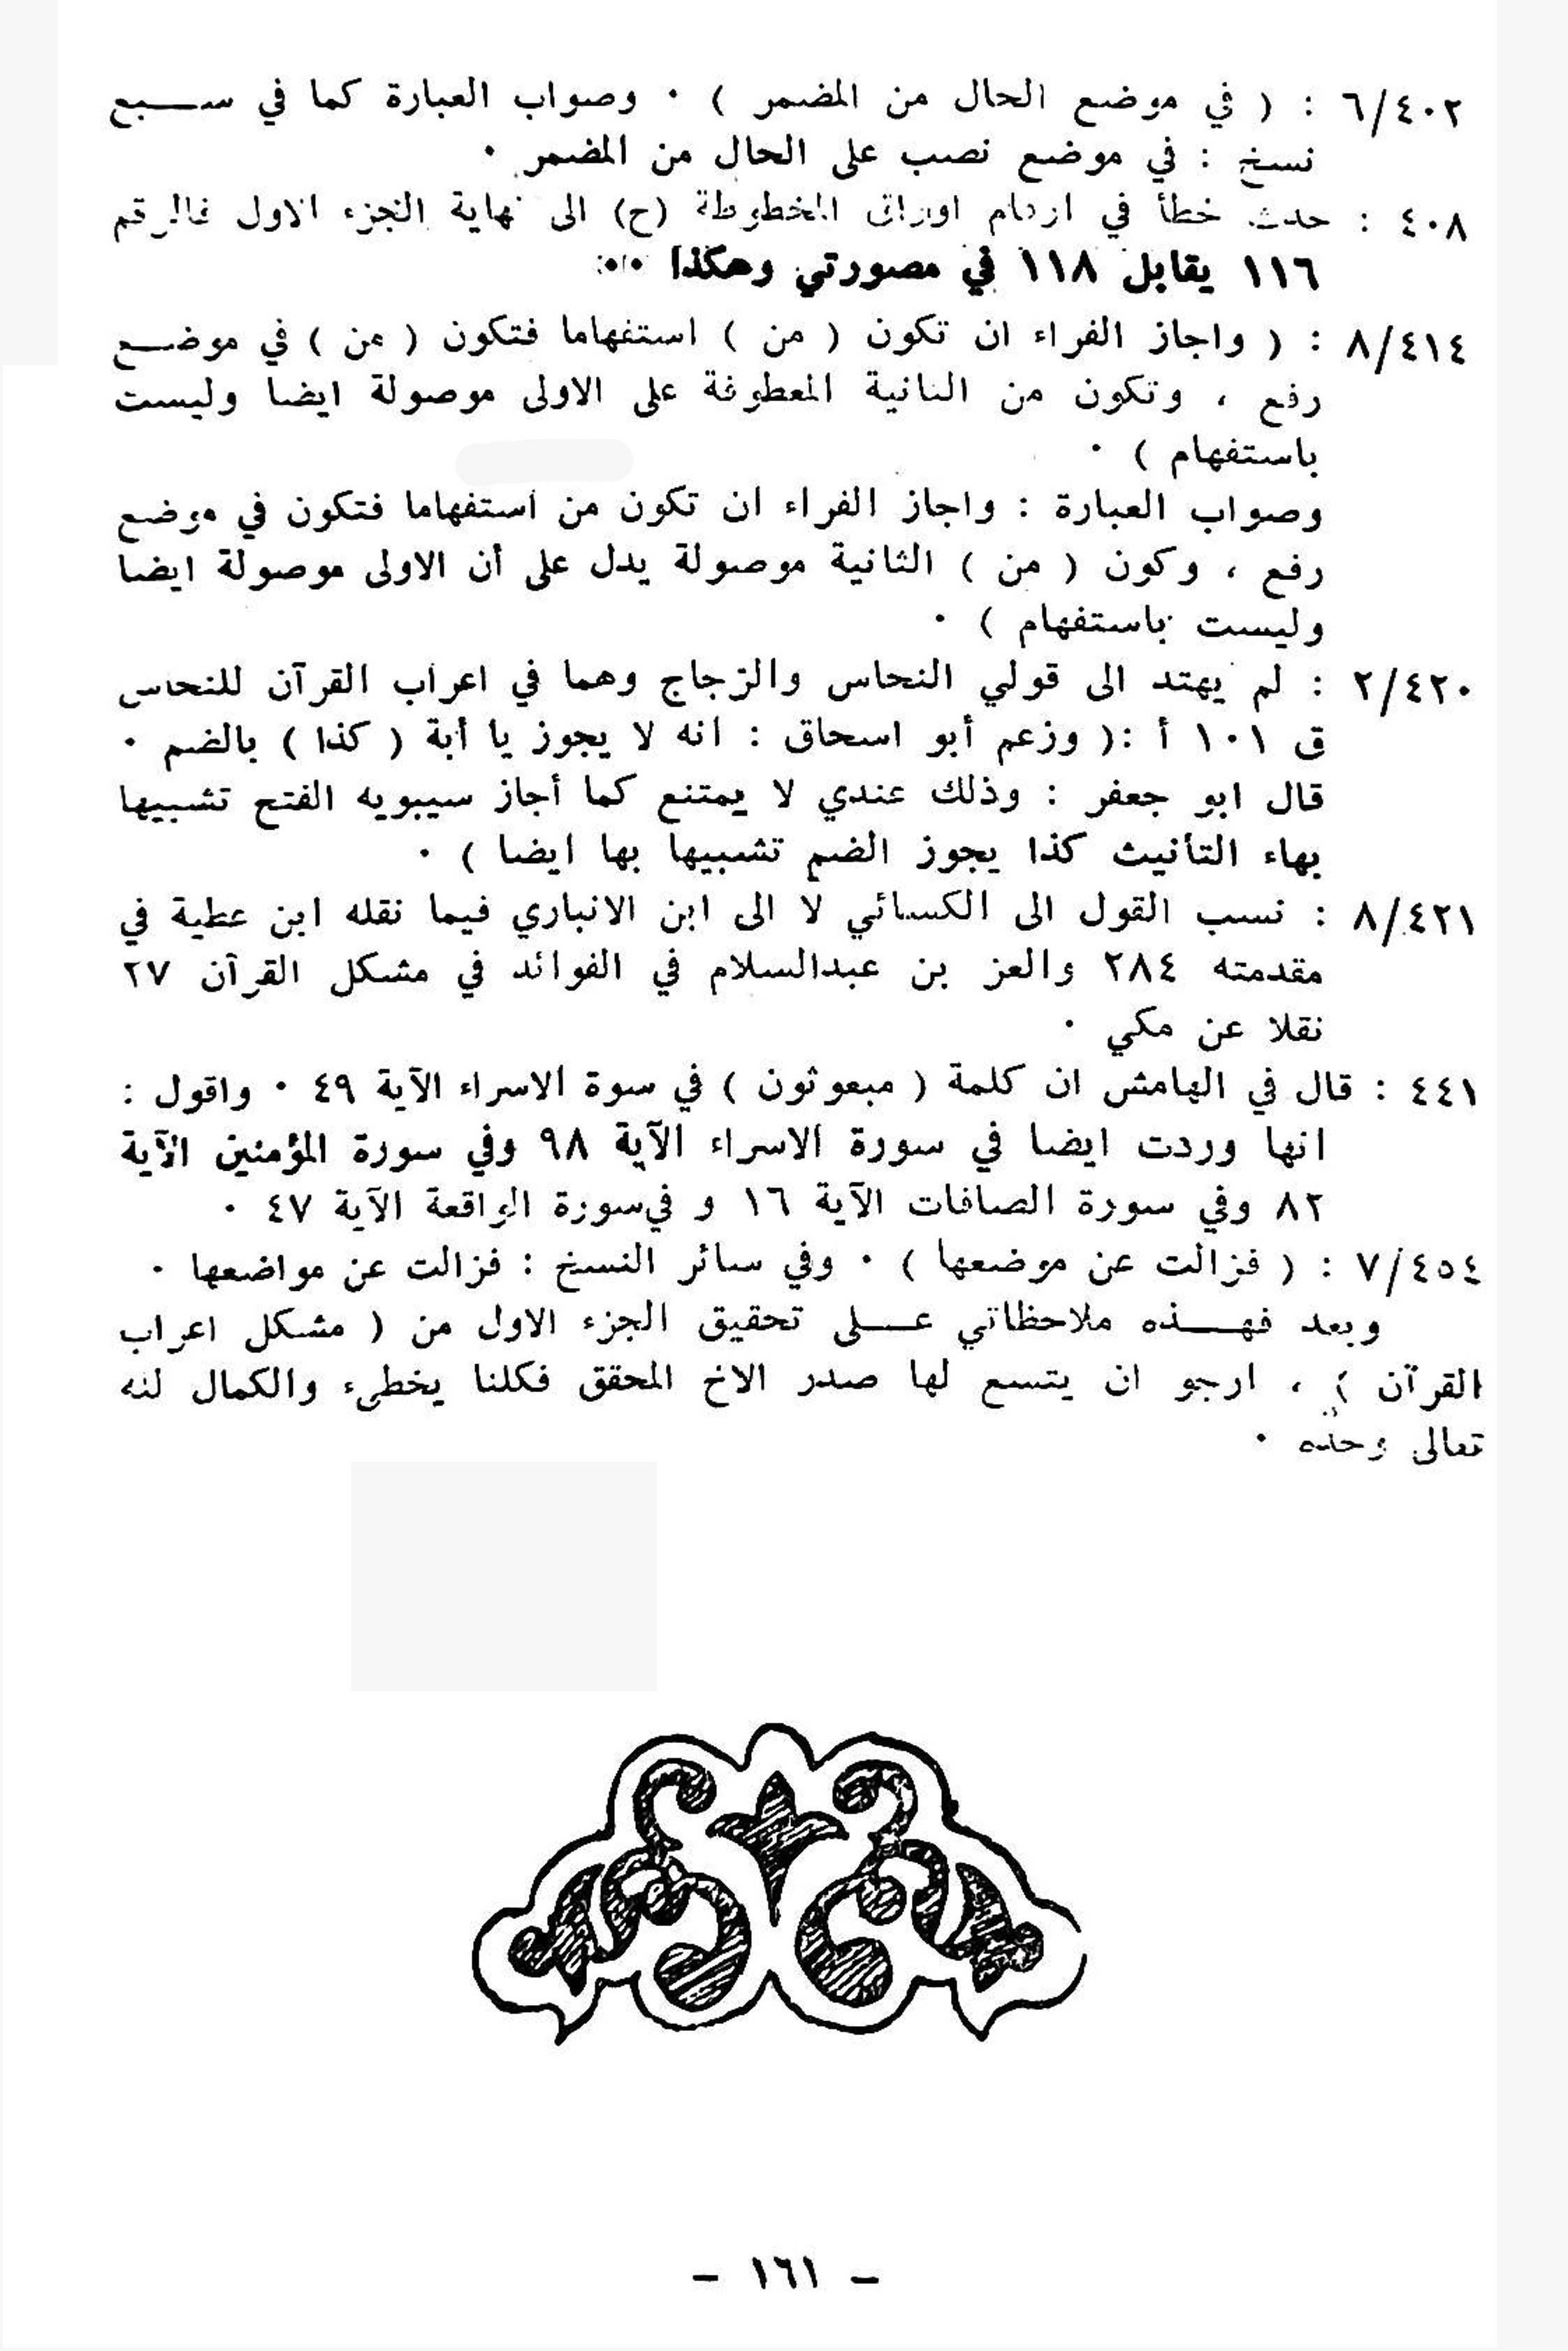 ٦/٤٠٢ : ( في موضع الحال من المضمر ) ٠ وصواب العبارة كما في ســـبع
نسخ : في موضع نصب على الحال من المضمر ٠
٤٠٨ : حدث خطأ في ارقام اوراق المخطوطة (ح) الى نهاية الجزء الاول فالرقم
١١٦ يقابل ١١٨ في مصورتي وهكذا ٠٠٠
٨/٤١٤ : ( واجاز الفراء ان تكون ( من ) استفهاما فتكون ( من ) في موضـــع
رفع ، وتكون من الثانية المعطوفة على الاولى موصولة ايضا وليست
باستفهام ) ٠
وصواب العبارة : واجاز الفراء ان تكون من استفهاما فتكون في موضع
رفع ، وكون ( من ) الثانية موصولة يدل على أن الاولى موصولة ايضا
وليست باستفهام ) ٠
٢/٤٢٠ : لم يهتد الى قولي النحاس والزجاج وهما في اعراب القرآن للنحاس
ق ١٠١ أ :( وزعم أبو اسحاق : انه لا يجوز يا أبة ( كذا ) بالضم ٠
قال ابو جعفر : وذلك عندي لا يمتنع كما أجاز سيبويه الفتح تشبيها
بهاء التأنيث كذا يجوز الضم تشبيها بها ايضا ) ٠
٨/٤٢١ : نسب القول الى الكسائي لا الى ابن الانباري فيما نقله ابن عطية في
مقدمته ٢٨٤ والعز بن عبدالسلام في الفوائد في مشكل القرآن ٢٧
نقلا عن مكي ٠
٤٤١ : قال في الهامش ان كلمة ( مبعوثون ) في سوة الاسراء الآية ٤٩ ٠ واقول :
انها وردت ايضا في سورة الاسراء الآية ٩٨ وفي سورة المؤمنين الآية
٨٢ وفي سورة الصافات الآية ١٦ و في سورة الواقعة الآية ٤٧ ٠
٧/٤٥٤ : ( فزالت عن موضعها ) ٠ وفي سائر النسخ : فزالت عن مواضعها ٠
وبعد فهـــذه ملاحظاتي عـــلى تحقيق الجزء الاول من ( مشكل اعراب
القرآن ) ، ارجو ان يتسع لها صدر الاخ المحقق فكلنا يخطىء والكمال لله
تعالى وحده ٠
– ١٦١ –